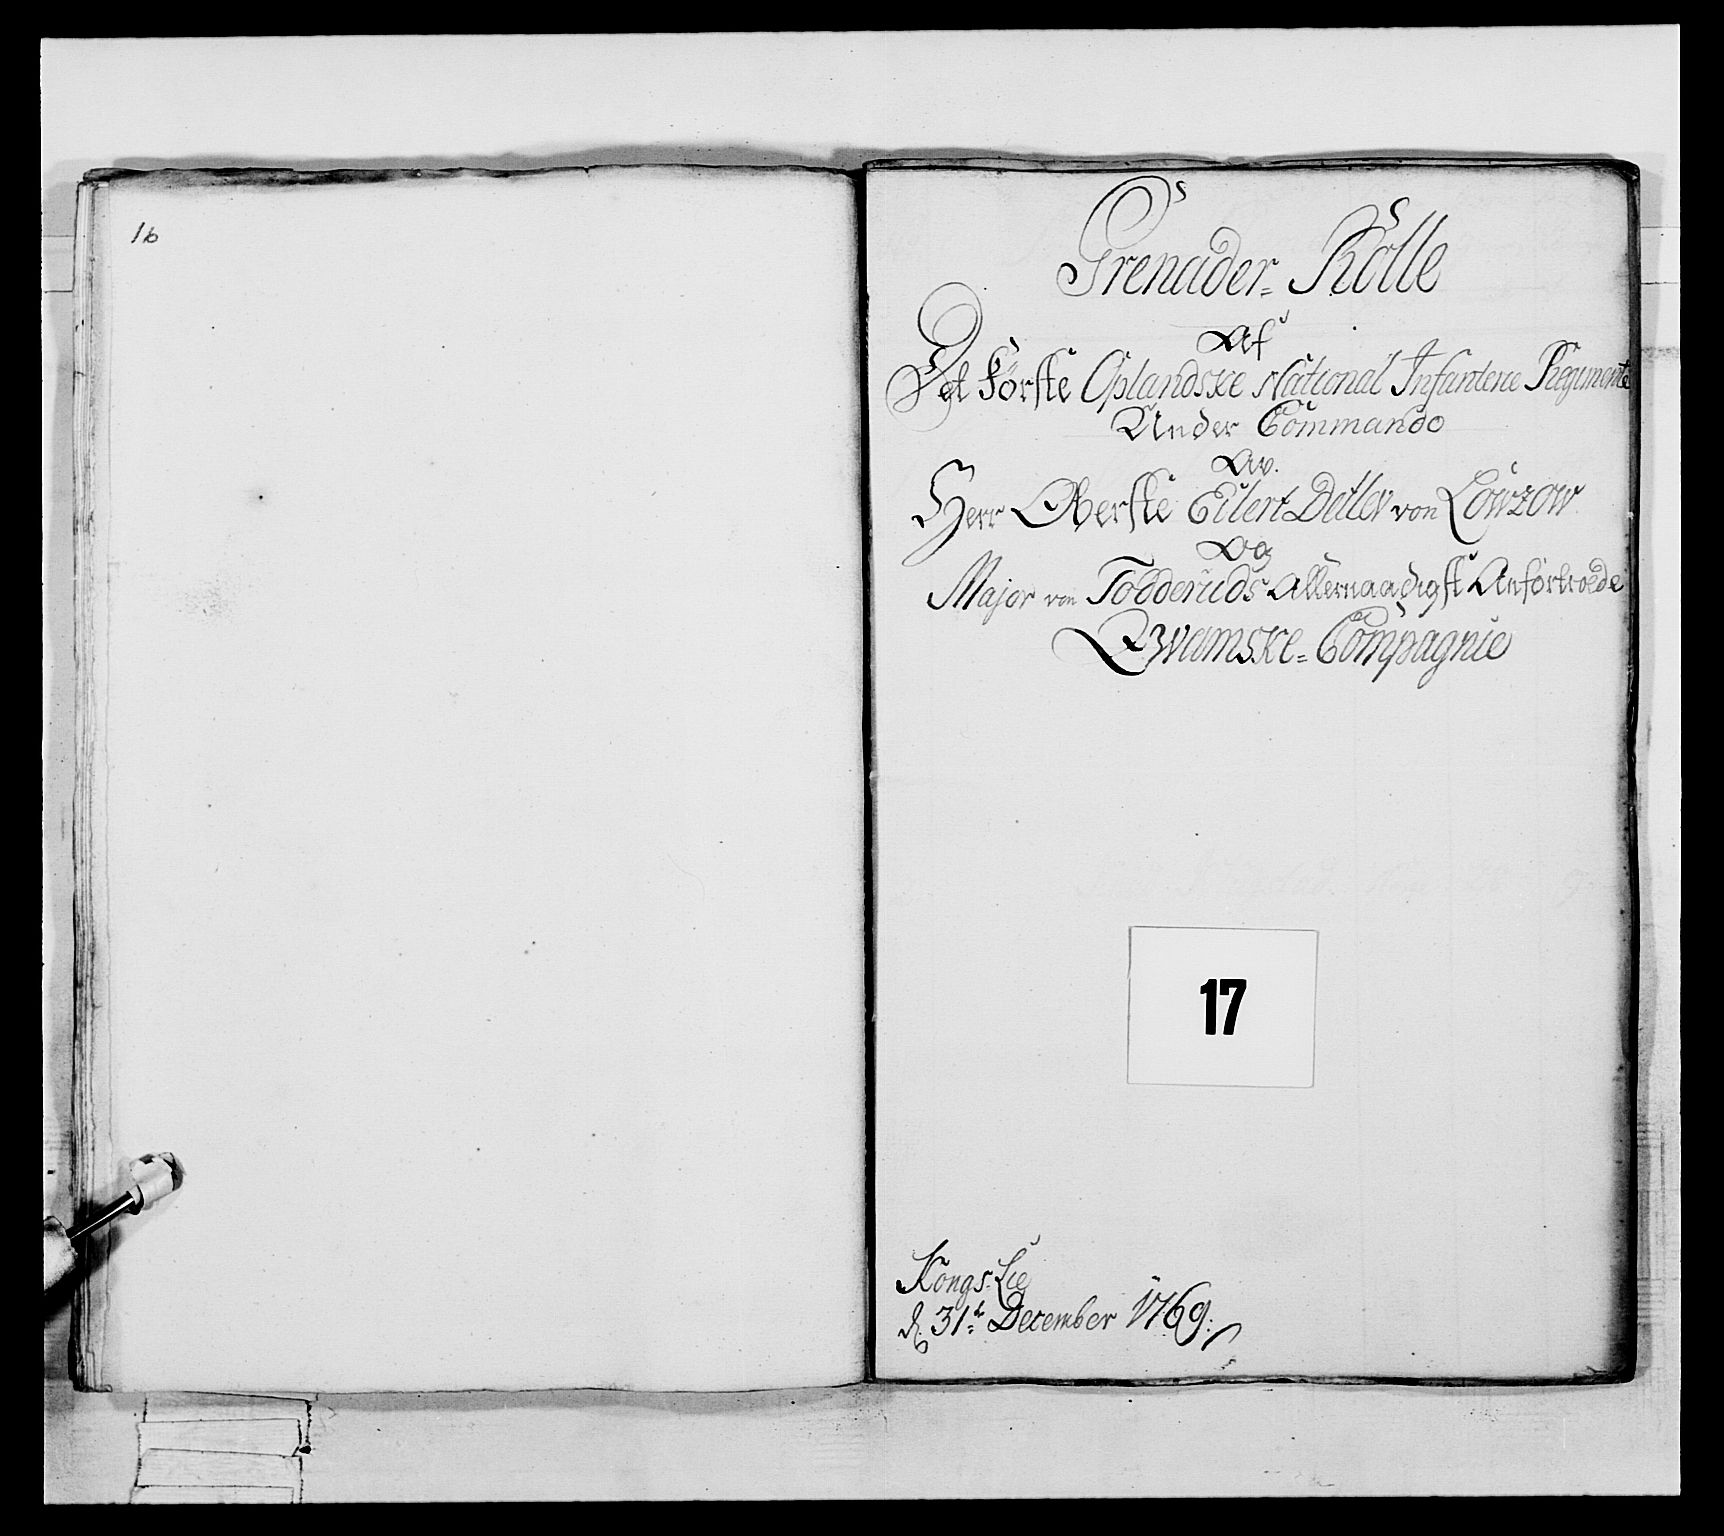 16
Grenader= Rolle
Af
Det Förste Oplandske National Infanterie Regimente
Under Commando
Av.
Herr Oberste Eilert Detlev von Löwzow
Og
Major von Todderuds Allernaadigst Anfortroede
Qwamske= Compagnie
17
Kongs-Lie
d. 31te December 1769.